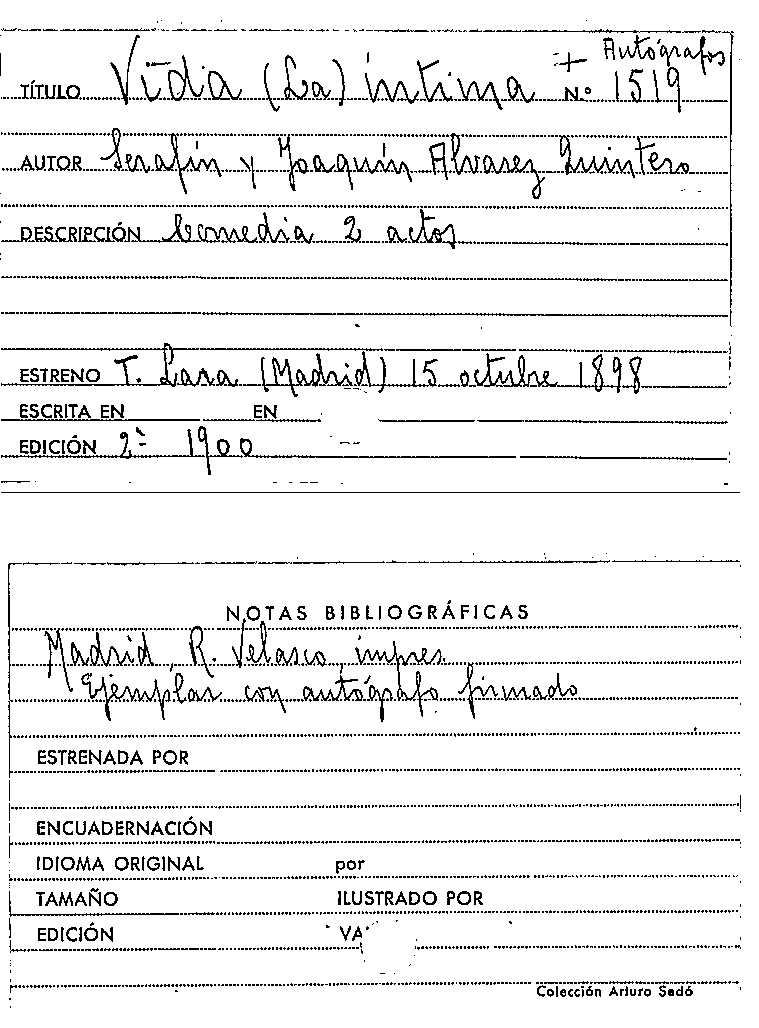 + Autógrafos
TÍTULO Vida (La) íntima N.º 1519
AUTOR Serafín y Joaquín Alvarez Quintero
DESCRIPCIÓN Comedia 2 actos
ESTRENO T. Lara (Madrid) 15 octubre 1898
ESCRITA EN EN
EDICIÓN 2ª 1900
NOTAS BIBLIOGRÁFICAS
Madrid, R. Velasco, impres.
Ejemplar con autógrafo firmado
ESTRENADA POR
ENCUADERNACIÓN
IDIOMA ORIGINAL por
TAMAÑO ILUSTRADO POR
EDICIÓN
Colección Arturo Sedó